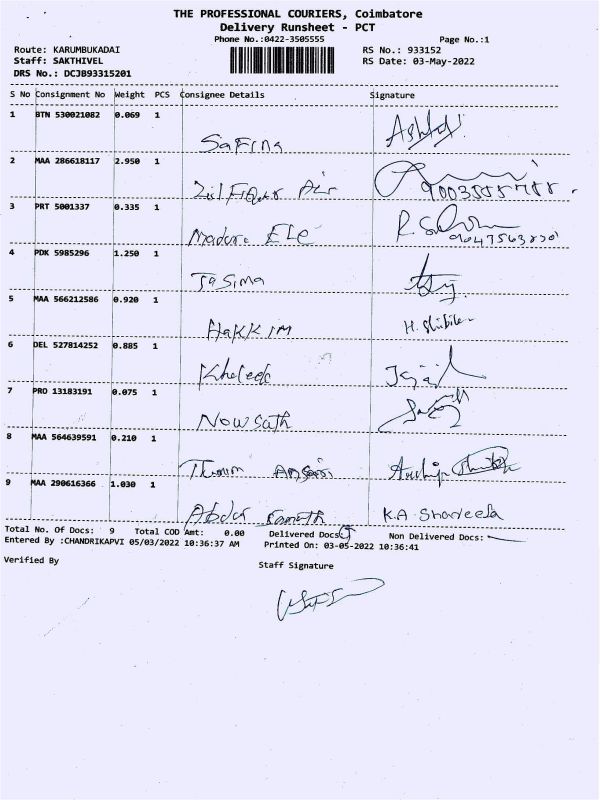 THE PROFESSIONAL COURIERS, Coimbatore
Delivery Runsheet - PCT
Phone No.:0422-3505555
Page No.:1
Route: KARUMBUKADAI
RS No.: 933152
Staff: SAKTHIVEL
RS Date: 03-May-2022
DRS No.: DCJB93315201
S No Consignment No Weight PCS Consignee Details Signature
1 BTN 530021082 0.069 1
Safina
2 MAA 286618117 2.950 1
3 PRT 5001337 0.335 1
Madura ELE
4 PDK 5985296 1.250 1
Jasima
5 MAA 566212586 0.920 1
HAKKIM H. Shibila
6 DEL 527814252 0.885 1
Kheleel
7 PRO 13183191 0.075 1
Nowsath
8 MAA 564639591 0.210 1
Ansari
9 MAA 290616366 1.030 1
Abdul K.A. Shareela
Total No. Of Docs: 9 Total COD Amt: 0.00 Delivered Docs: 9 Non Delivered Docs:
Entered By :CHANDRIKAPVI 05/03/2022 10:36:37 AM Printed On: 03-05-2022 10:36:41
Verified By
Staff Signature